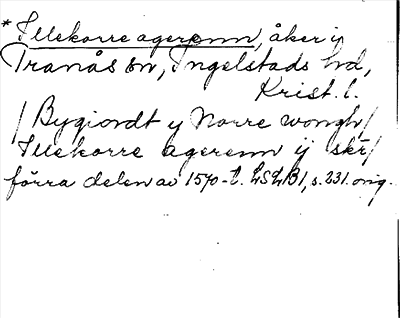 * Illekorre agerenn, åker ij
Tranås sn, Ingelstads hd,
Krist. l.
/ Bygiordt y Norre wongh /
Illekorre agerenn ij skr /
förra delen av 1570-t. LSLB1, s. 231. orig.